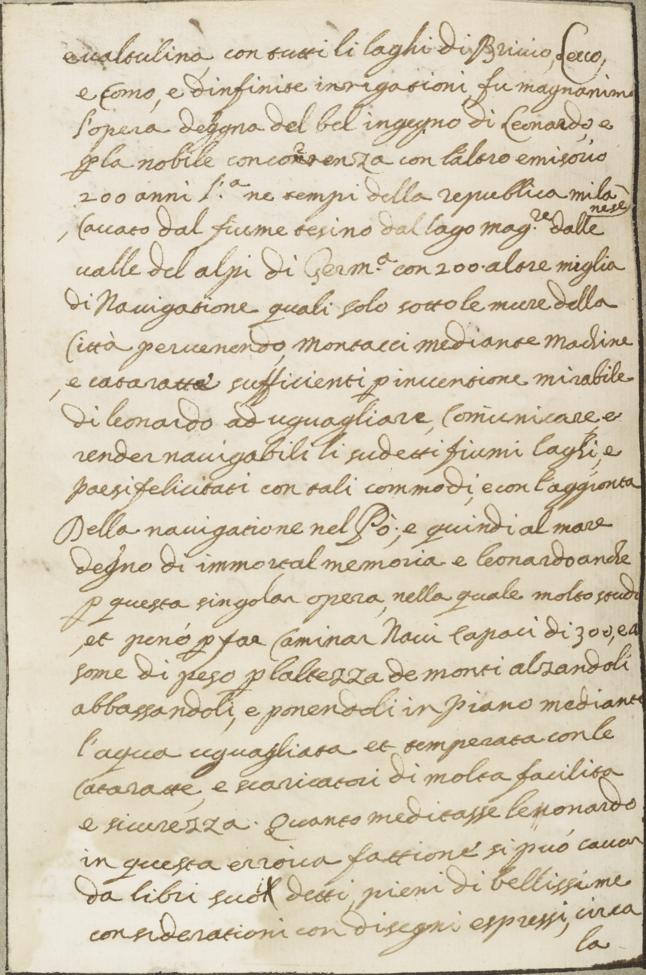 e valtulina con tutti li laghi di Brivio, Lecco,
e Como, e d'infinite inrigationi, fu magnanim
l'opera degna del bel ingegno di Leonardo, e
p la nobile concorrenza con l'altro emisorio
200 anni p.ª ne tempi della republica mila
nese
, Cavato dal fiume tesino dal lago mag.re dalle
valle del alpi di Germ.ª con 200 altre miglia
di Navigatione quali solo sotto le mure della
Città pervenendo, montacci mediante machine
, e cataratte sufficienti p inventione mirabile
di leonardo ad uguagliare, Comunicare, e
render navigabili li sudetti fiumi laghi, e
paesi felicitati con tali commodi, e con l'aggionta
Della navigatione nel Pò, e quindi al mare
degno di immortal memoria e leonardo anche
p questa singolar opera, nella quale molto studi
, et penó p far Caminar Navi capaci di 300, e
some di peso p l'altezza de monti alzandoli
abbassandoli, e ponendoli in piano mediante
l'aqua uguagliata et temperata con le
Cataratte, e scaricatori di molta facilita
e sicurezza. Quanto meditasse leonardo
in questa erroica fattione si può cavar
da libri suoi detti, pieni di bellissime
considerationi con disegni espressi, circa
la